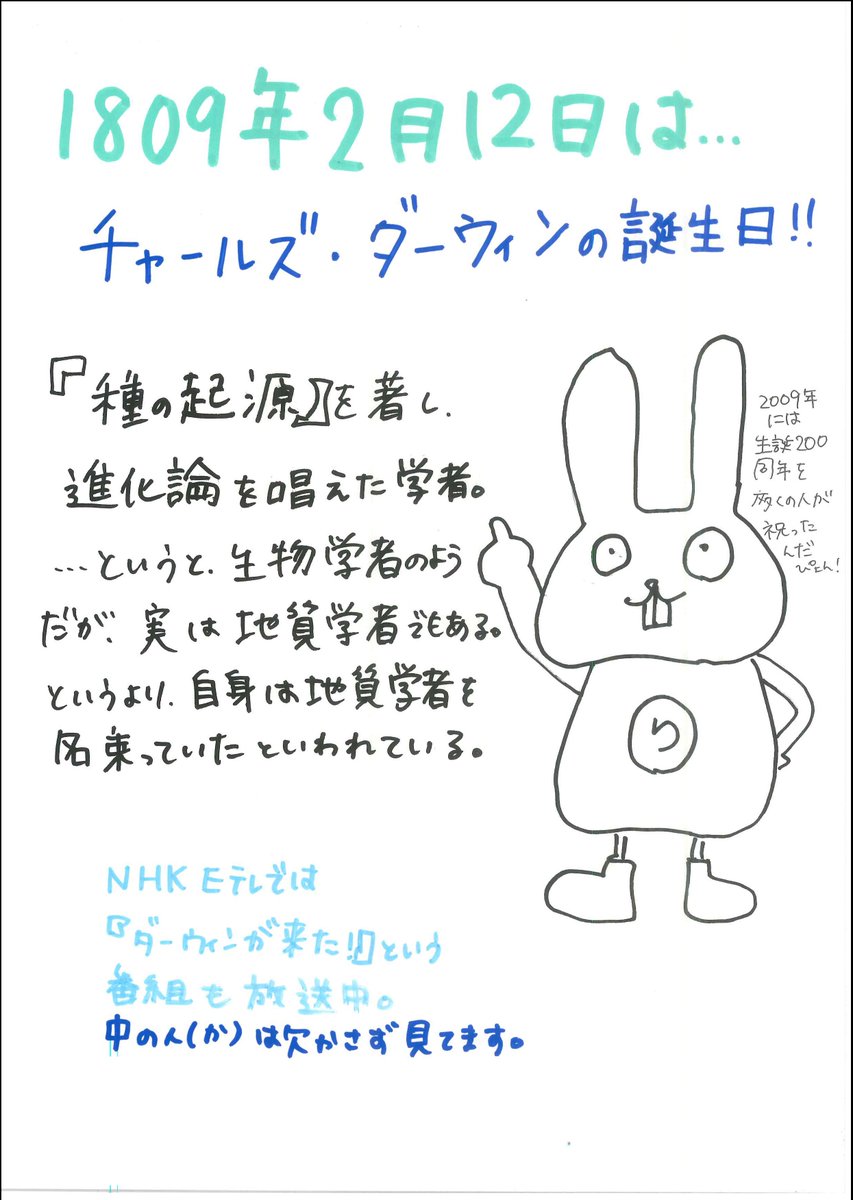 1809年2月12日は…
チャールズ・ダーウィンの誕生日!!
『種の起源』を著し、
進化論を唱えた学者。
…というと、生物学者のよう
だが、実は地質学者でもある。
というより、自身は地質学者を
名乗っていたといわれている。
2009年
には
生誕200
周年を
多くの人が
祝った
んだ
ぴょん!
り
NHK Eテレでは
『ダーウィンが来た!』という
番組も放送中。
中の人(か)は欠かさず見てます。